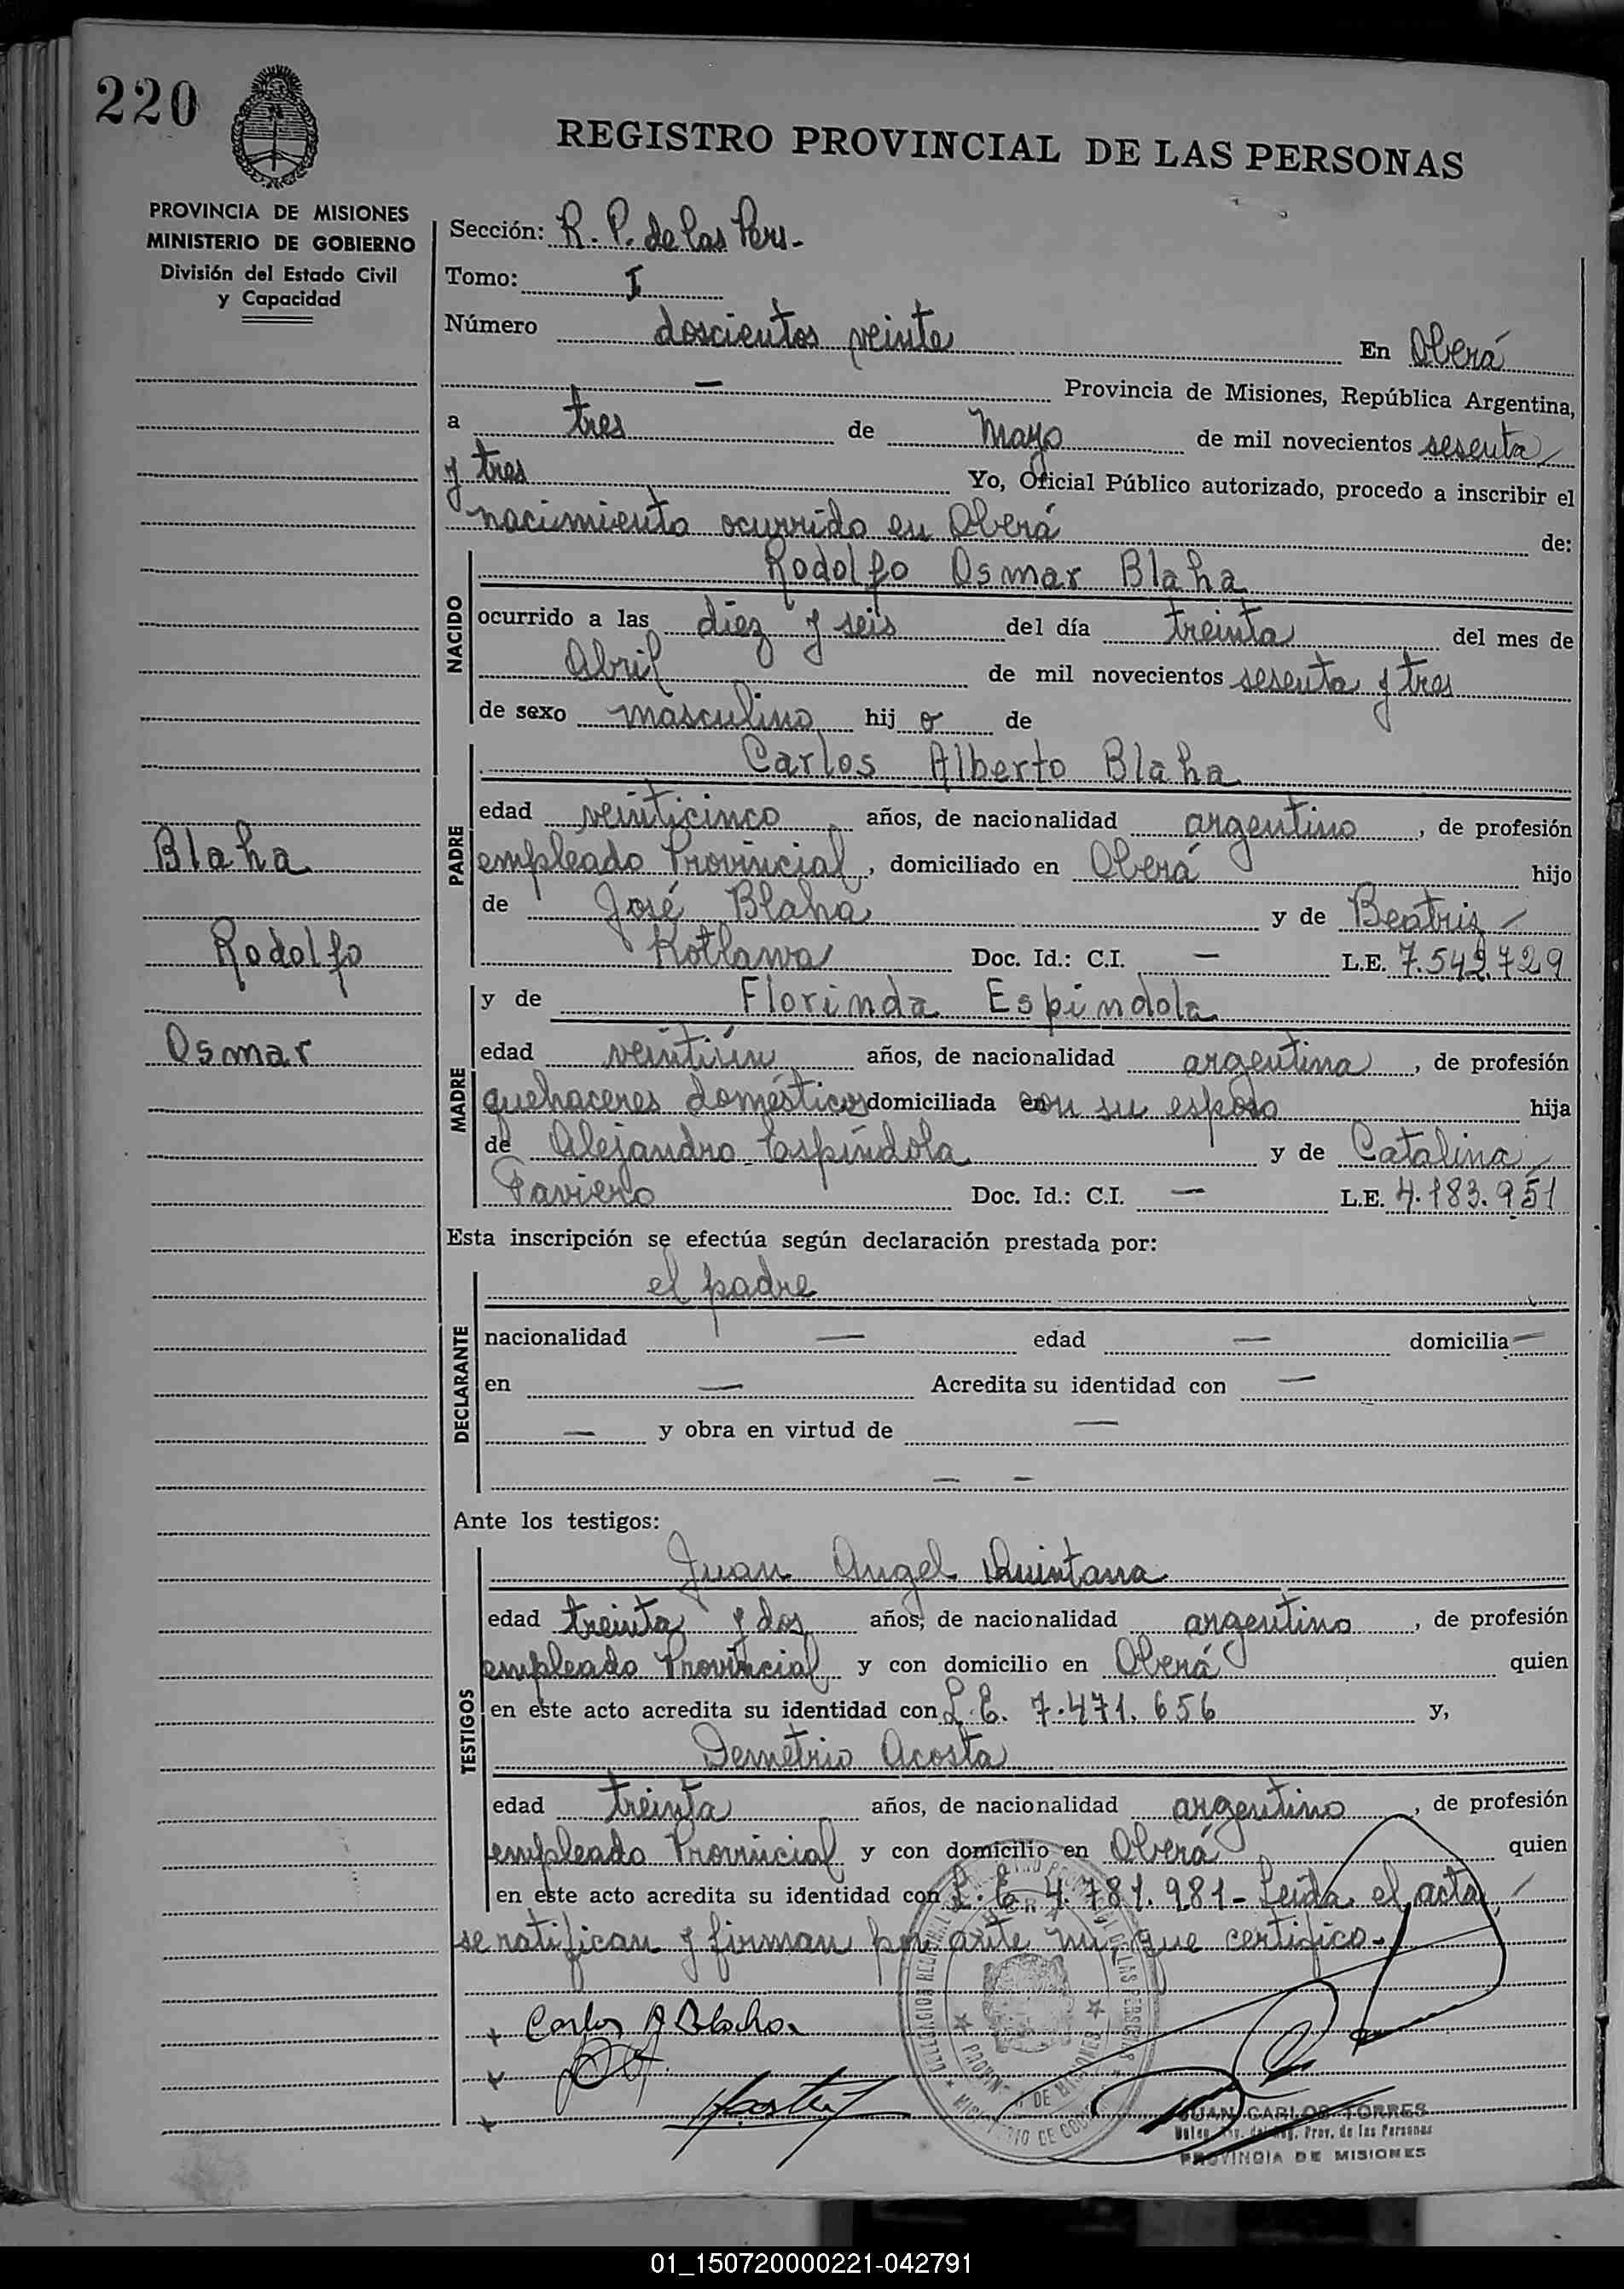 220
REGISTRO PROVINCIAL DE LAS PERSONAS
PROVINCIA DE MISIONES
MINISTERIO DE GOBIERNO
División del Estado Civil
y Capacidad
Sección: R. P. de las Pers.
Tomo: I
Número doscientos veinte En Oberá
— Provincia de Misiones, República Argentina,
a tres de Mayo de mil novecientos sesenta
y tres Yo, Oficial Público autorizado, procedo a inscribir el
nacimiento ocurrido en Oberá de:
NACIDO
Rodolfo Osmar Blaha
ocurrido a las diez y seis del día treinta del mes de
Abril de mil novecientos sesenta y tres
de sexo masculino hijo de
PADRE
Carlos Alberto Blaha
edad veinticinco años, de nacionalidad argentino, de profesión
empleado Provincial, domiciliado en Oberá hijo
de José Blaha y de Beatriz
Kotlawa Doc. Id.: C.I. — L.E. 7.542.729
Blaha
Rodolfo
Osmar
MADRE
y de Florinda Espindola
edad veintiún años, de nacionalidad argentina, de profesión
quehaceres domésticos domiciliada con su esposo hija
de Alejandro Espíndola y de Catalina
Doc. Id.: C.I. — L.E. 4.183.951
Esta inscripción se efectúa según declaración prestada por:
DECLARANTE
el padre
nacionalidad — edad — domicilia —
en — Acredita su identidad con —
— y obra en virtud de —
— —
Ante los testigos:
TESTIGOS
Juan Angel Quintana
edad treinta y dos años, de nacionalidad argentino, de profesión
empleado Provincial y con domicilio en Oberá quien
en este acto acredita su identidad con L.E. 7.471.656 y,
Demetrio Acosta
edad treinta años, de nacionalidad argentino, de profesión
empleado Provincial y con domicilio en Oberá quien
en este acto acredita su identidad con L.E. 4.781.981 - Leída el acta
se ratifican y firman por ante mi, que certifico.
Carlos A Blaha
JUAN CARLOS TORRES
Prov. de las Personas
PROVINCIA DE MISIONES
01_150720000221-042791